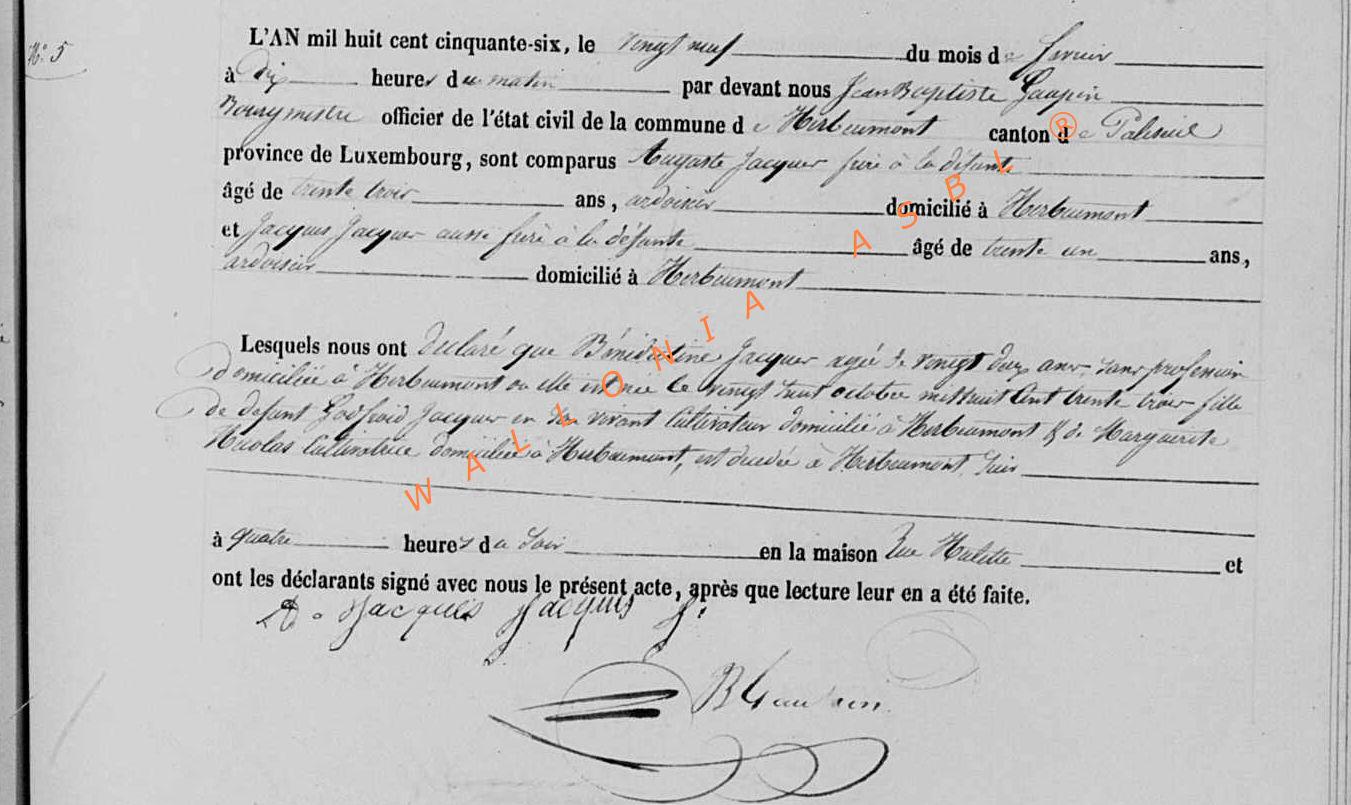 N.° 5
L'AN mil huit cent cinquante-six, le vingt neuf du mois de fevrier
à Dix heures du matin par devant nous Jean Baptiste Gaupin
Bourgmestre officier de l'état civil de la commune de Herbeumont canton de Paliseul
province de Luxembourg, sont comparus Auguste Jacques frère à la défunte
âgé de trente trois ans, ardoisier domicilié à Herbeumont
et Jacques Jacques aussi frère à la défunte âgé de trente un ans,
ardoisier domicilié à Herbeumont
Lesquels nous ont déclaré que Bénédictine Jacques agée de vingt deux ans sans profession
domiciliée à Herbeumont ou elle est née le vingt huit octobre mil huit cent trente trois fille
de defunt Godfroid Jacques en son vivant Cultivateur domicilié à Herbeumont & de Marguerite
Nicolas Cultivatrice domiciliée à Herbeumont, est decedée à Herbeumont, hier
à quatre heures du Soir en la maison Rue Hulette et
ont les déclarants signé avec nous le présent acte, après que lecture leur en a été faite.
A. Jacques Jacques J.
B Gaupin
WALLONIA ASBL ®